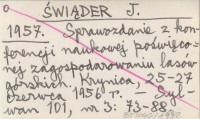 ŚWIĄDER J.
1957. Sprawozdanie z kon-
ferencji naukowej poświęco-
nej zagospodarowaniu lasów
górskich. Krynica, 25-27
czerwca 1956 r. — Syl-
wan 101, nr 3: 73-88